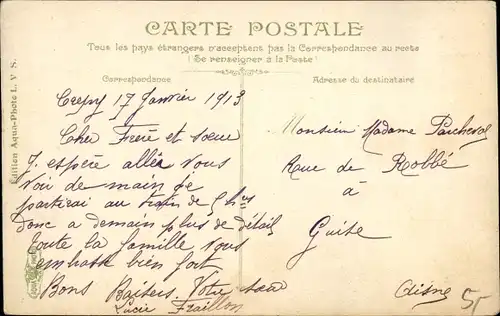 CARTE POSTALE
Tous les pays étrangers n'acceptent pas la Correspondance au recto
(Se renseigner à la Poste)
Correspondance
Adresse du destinataire
Édition Aqua-Photo L. V. S.
17 Janvier 1913
Cher Frere et sœur
J. espère allée vous
voir de main je
partirai au train de 5 h
donc a demain plus de détail
toute la famille vous
embrasse bien fort
Bons Baisers. Votre sœur
Lucie
Monsieur Madame
Rue de Robbé
à
Guise
Aisne